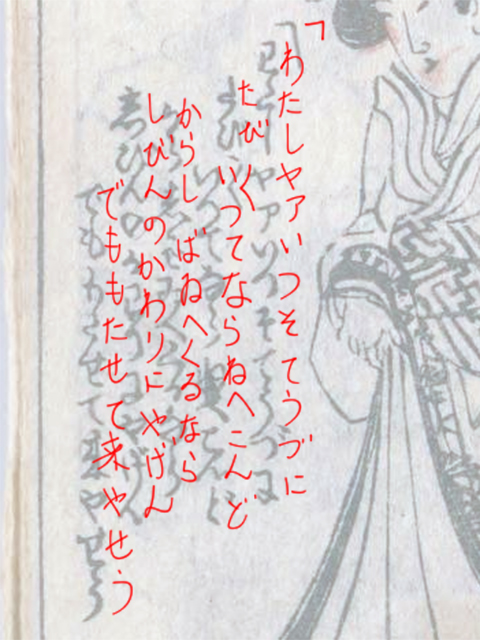 「わたしヤアいつそてうづに
たび〱いつてならねへこんど
からしばゐへくるなら
しびんのかわりにやげん
でももたせて来やせう